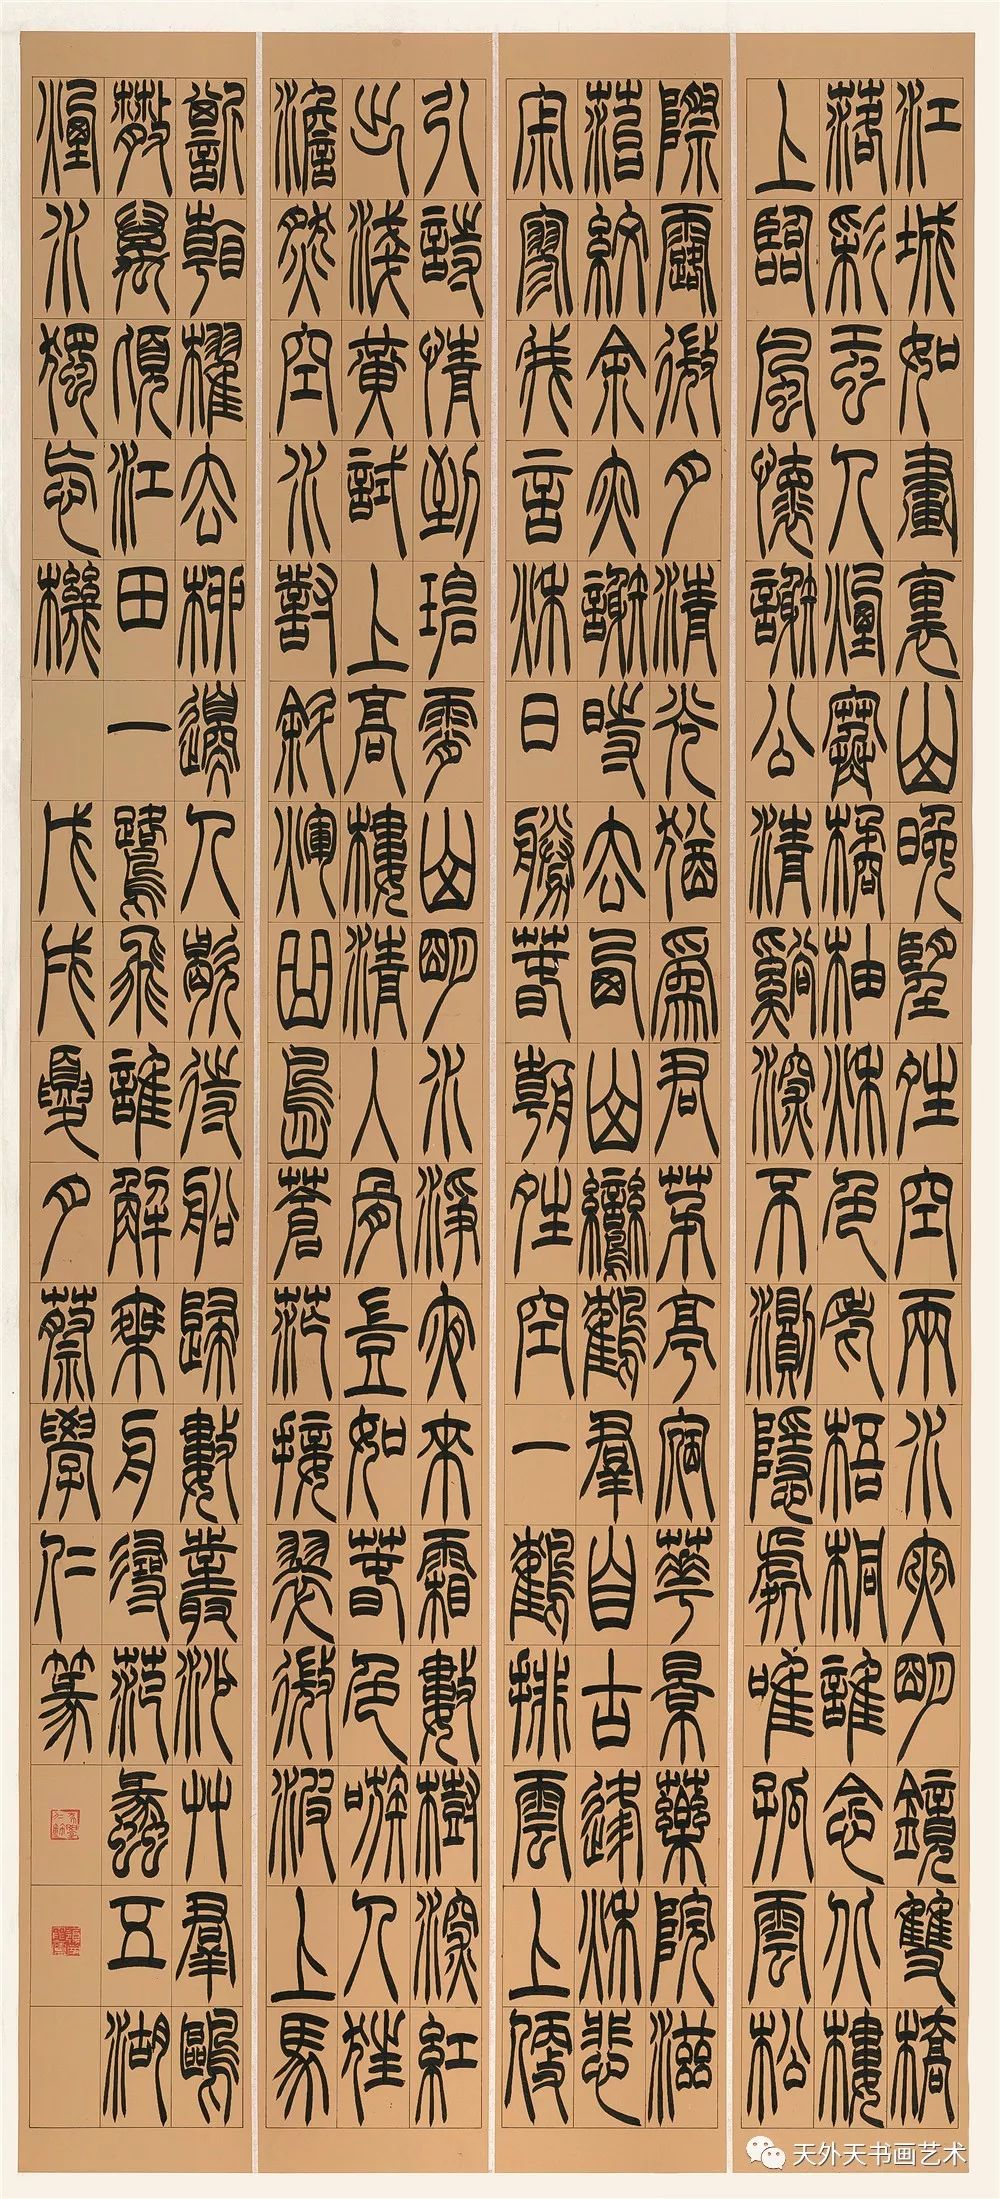 江城如畫裏山晚望晴空兩水夾明鏡雙橋
落彩虹人煙寒橘柚秋色老梧桐誰念北樓
上臨風懷謝公清谿深不測隱處唯孤雲松
際露微月清光猶為君茅亭宿華景藥院滋
苔紋余亦謝時去西山鸞鶴羣自古逢秋悲
寂寥我言秋日勝春朝晴空一鶴排雲上便
引詩情到碧霄山明水淨夜來霜數樹深紅
出淺黃試上高樓清入骨豈如春色嗾人狂
澹然空水對斜暉曲島蒼茫接翠微波上馬
嘶看櫂去柳邊人歇待船歸數叢沙艸羣鷗
散萬頃江田一鷺飛誰解乘舟尋范蠡五湖
煙水獨忘機 戊戌夏月蔡學仁篆
天外天书画艺术